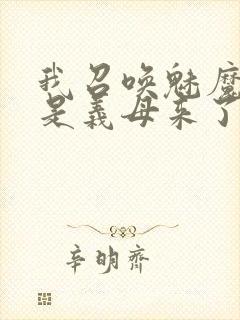 我召唤魅魔
是义母来了
辛明齐